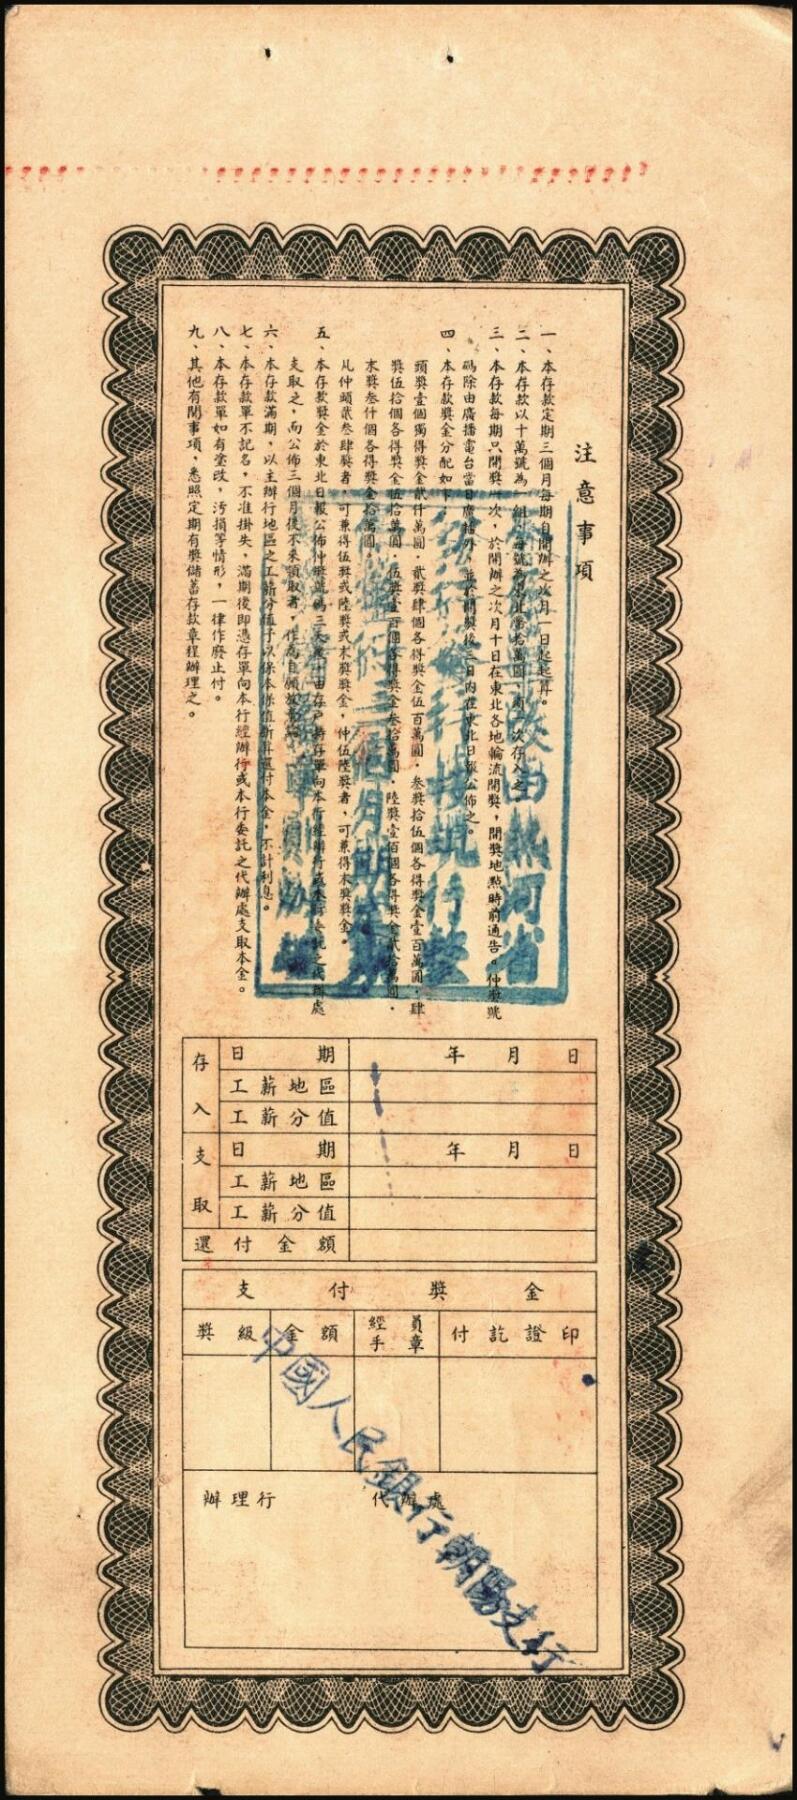 注意事項
一、本存款定期三個月每期自開辦之次月一日起起算。
二、本存款以十萬號為一組，每號為東北幣拾萬圓，須一次存入之。
三、本存款每期只開獎一次，於開辦之次月十日在東北各地輪流開獎，開獎地點時前通告。仲獎號
碼除由廣播電台當日廣播外，並於開獎後三日內在東北日報公佈之。
四、本存款獎金分配如下：
頭獎壹個獨得獎金貳仟萬圓．貳獎肆個各得獎金伍百萬圓．叁獎拾伍個各得獎金壹百萬圓．肆
獎伍拾個各得獎金伍拾萬圓．伍獎壹百個各得獎金叁拾萬圓．陸獎壹佰個各得獎金貳拾萬圓．
末獎叁仟個各得獎金拾萬圓
凡仲頭貳叁肆獎者，可兼得伍獎或陸獎或末獎獎金，仲伍陸獎者，可兼得末獎獎金。
五、本存款獎金於東北日報公佈仲獎號碼三天後，由存戶持存單向本行經辦行或本行委託之代辦處
支取之，而公佈三個月後不來領取者，作為自願放棄論。
六、本存款滿期，以主辦行地區之工薪分值予以保本保值折算還付本金，不計利息。
七、本存款單不記名，不准掛失，滿期後即憑存單向本行經辦行或本行委託之代辦處支取本金。
八、本存款單如有塗改，汚損等情形，一律作廢止付。
九、其他有關事項，悉照定期有獎儲蓄存款章程辦理之。
由熱河省
三個月期
存入 日期 年 月 日
工薪地區
工薪分值
支取 日期 年 月 日
工薪地區
工薪分值
還付金額
支付獎金
獎級 金額 經手員章 付訖證印
辦理行 代辦處
中國人民銀行朝陽支行